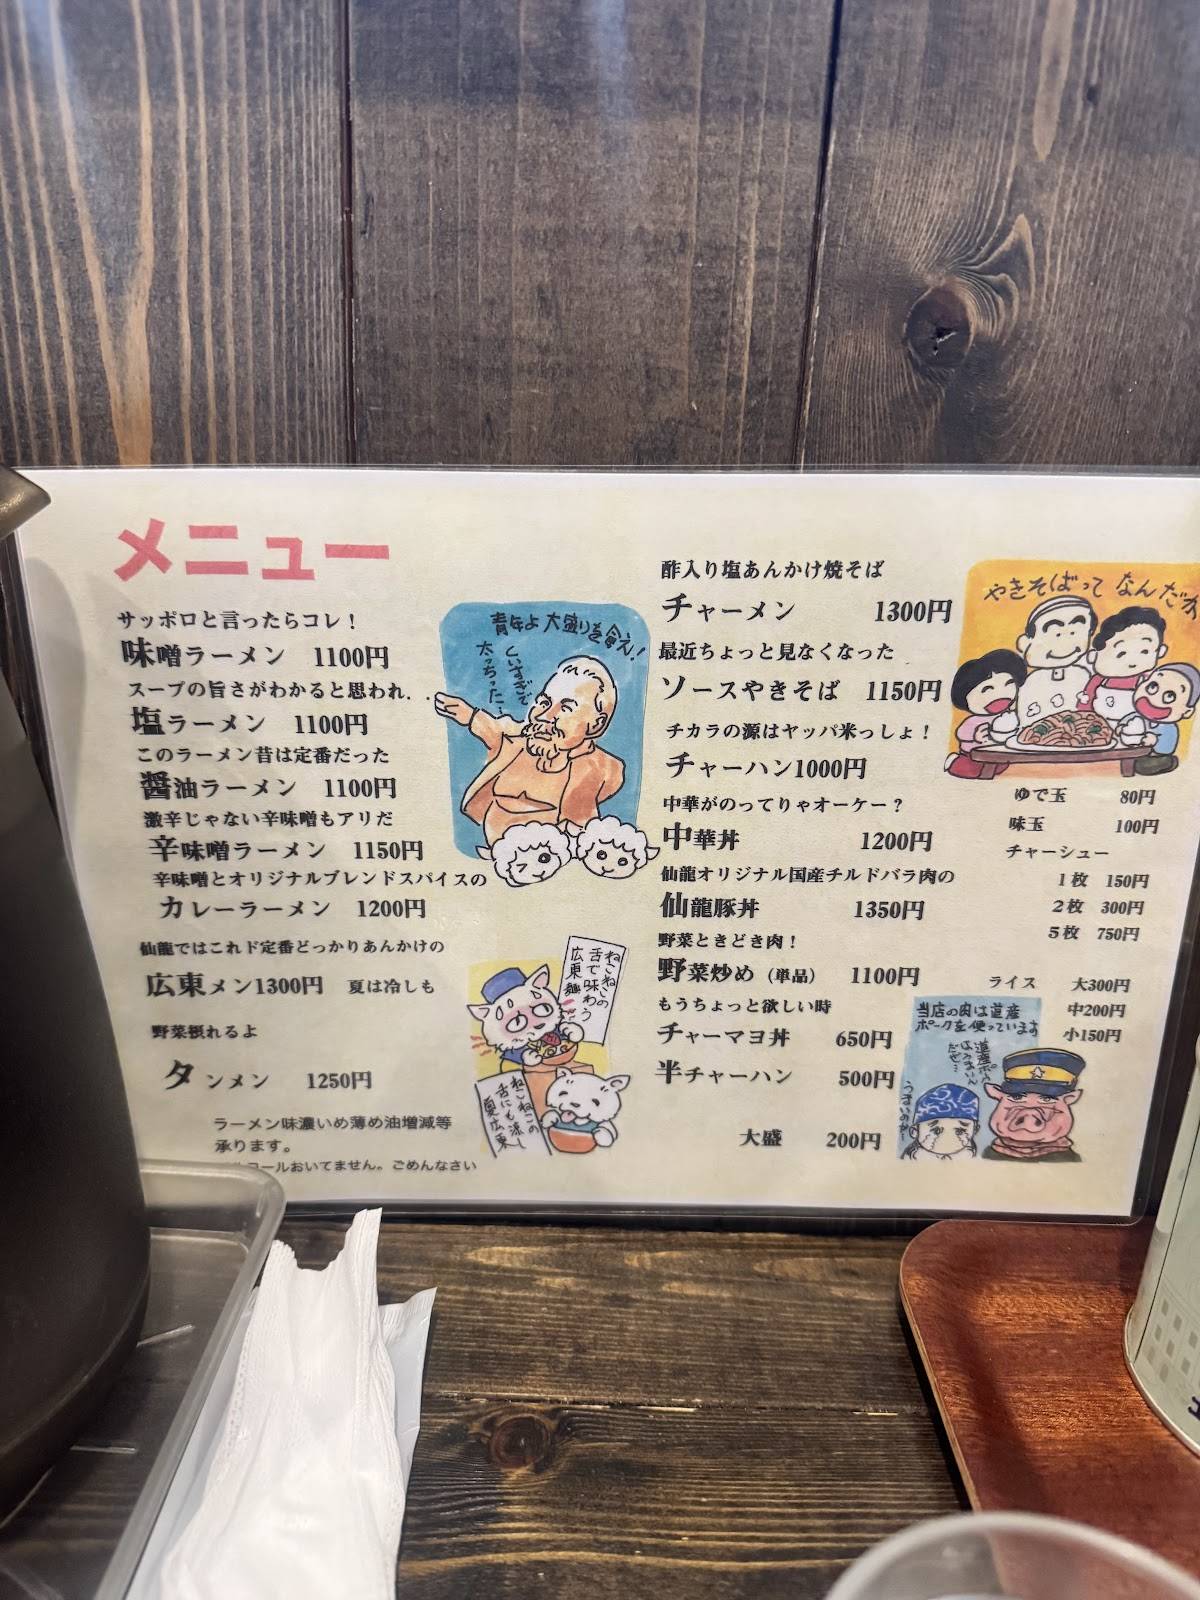 メニュー
サッポロと言ったらコレ！
味噌ラーメン 1100円
スープの旨さがわかると思われ．．
塩ラーメン 1100円
このラーメン昔は定番だった
醤油ラーメン 1100円
激辛じゃない辛味噌もアリだ
辛味噌ラーメン 1150円
辛味噌とオリジナルブレンドスパイスの
カレーラーメン 1200円
仙龍ではこれド定番どっかりあんかけの
広東メン1300円 夏は冷しも
野菜摂れるよ
タンメン 1250円
ラーメン味濃いめ薄め油増減等
承ります。
コールおいてません。ごめんなさい
青年よ大盛りを食え！
くいすぎで
太っちった…
ねこねこの
舌で味わう
広東麺
ねこねこの
舌にも涼し
夏広東
酢入り塩あんかけ焼そば
チャーメン 1300円
最近ちょっと見なくなった
ソースやきそば 1150円
チカラの源はヤッパ米っしょ！
チャーハン1000円
中華がのってりゃオーケー？
中華丼 1200円
仙龍オリジナル国産チルドバラ肉の
仙龍豚丼 1350円
野菜ときどき肉！
野菜炒め（単品） 1100円
もうちょっと欲しい時
チャーマヨ丼 650円
半チャーハン 500円
大盛 200円
やきそばって なんだか
ゆで玉 80円
味玉 100円
チャーシュー
1枚 150円
2枚 300円
5枚 750円
ライス 大300円
中200円
小150円
当店の肉は道産
ポークを使っています
道産ポーク
うまいのか